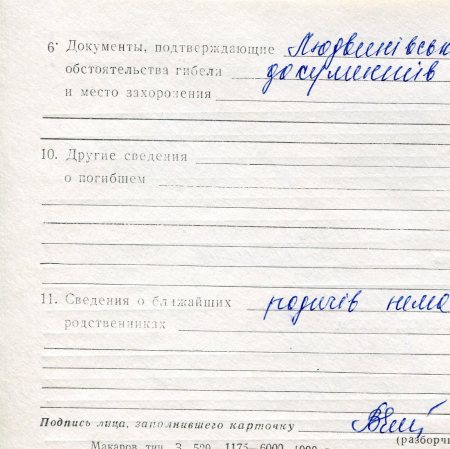 6· Документы, подтверждающие Людвинівськ
обстоятельства гибели документів
и место захоронения
10. Другие сведения
о погибшем
11. Сведения о ближайших родичів нема
родственниках
Подпись лица, заполнившего карточку
(разборчи
Макаров тип. З. 529. 1175—6000